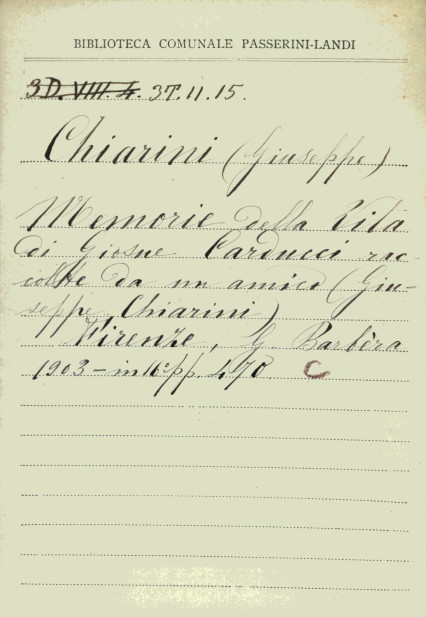 BIBLIOTECA COMUNALE PASSERINI-LANDI
3D.VIII.4. 3T.11.15.
Chiarini (Giuseppe)
Memorie della Vita
di Giosue Carducci rac-
colte da un amico (Giu-
seppe Chiarini)
Firenze, G. Barbèra
1903 - in 16° pp. 470. C